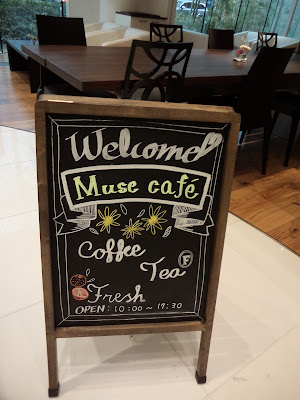 Welcome
Muse café
Coffee
Tea F
Fresh
OPEN: 10:00 ~ 17:30